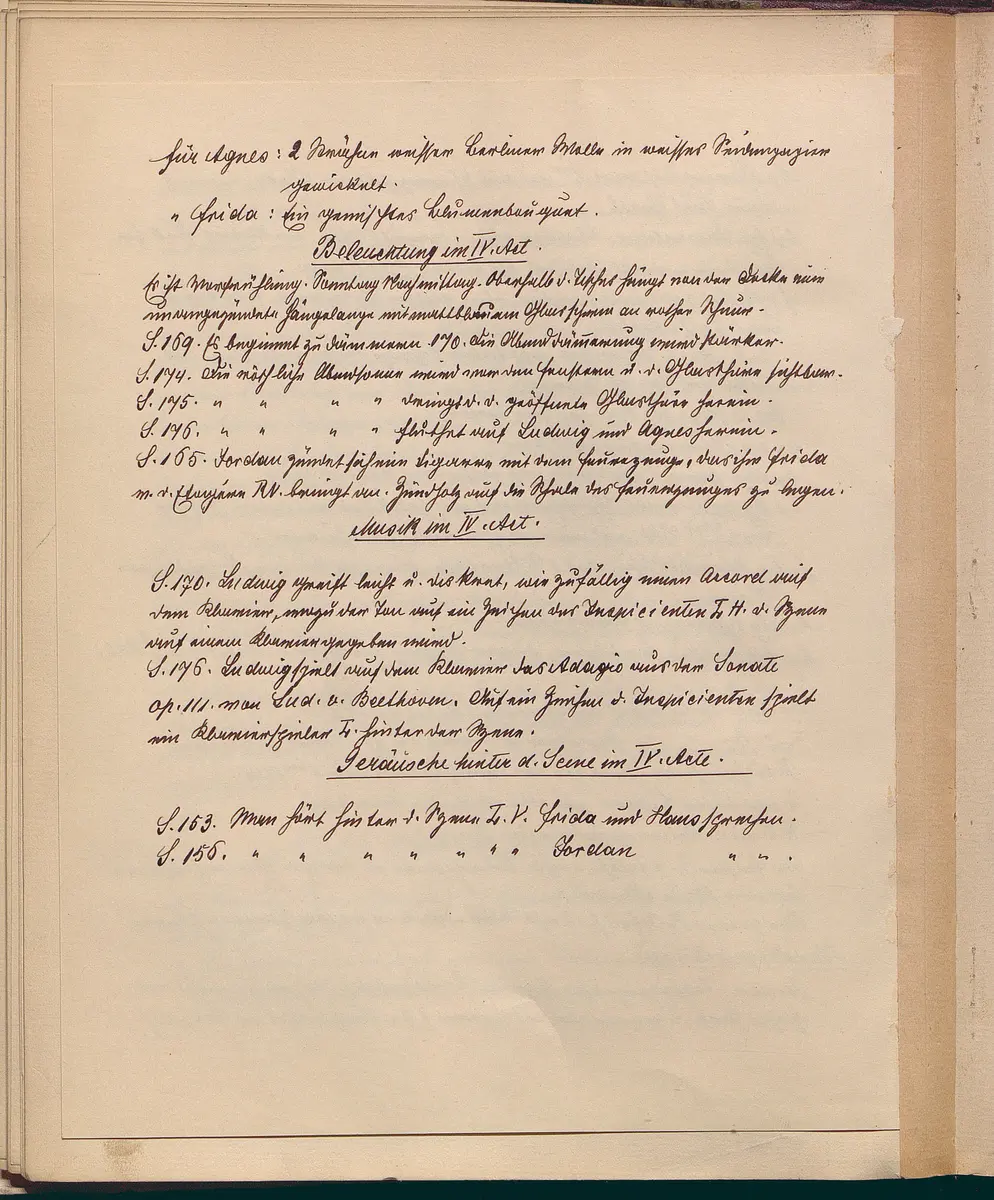 Für Agnes: 2 Strähne weisser Berliner Wolle in weisses Seidenpapier
gewickelt.
" Frida: Ein gemischtes Blumenbouquet.
Beleuchtung im IV. Act.
Es ist Vorfrühling. Sonntag Nachmittag. Oberhalb d. Tisches hängt von der Decke eine
unangezündete Hängelampe mit mattblauem Glasschirm an rother Schnur.
S. 169. Es beginnt zu dämmern. 170. Die Abenddämerung wird stärker.
S. 174. Die röthliche Abendsonne wird vor den Fenstern u. d. Glasthüre sichtbar.
S. 175. " " " " dringt d. d. geöffnete Glasthüre herein.
S. 176. " " " " fluthet auf Ludwig und Agnes herein.
S. 165. Jordan zündet sich eine Zigarre mit dem Feuerzeuge, das ihm Frida
v. d. Etagère RV. bringt an. Zündholz auf die Schale des Feuerzeuges zu legen.
Musik im IV. Act.
S. 170. Ludwig greift leicht u. diskret, wie zufällig einen Accord auf
dem Klavier, wozu der Ton auf ein Zeichen des Inspicienten L H. d. Szene
auf einem Klavier gegeben wird.
S. 176. Ludwig spielt auf dem Klavier das Adagio aus der Sonate
op. 111. von Lud. v. Beethoven. Auf ein Zeichen d. Inspicienten spielt
ein Klavierspieler L. hinter der Szene.
Geräusche hinter d. Scene im IV. Acte.
S. 153. Man hört hinter d. Szene L. V. Frida und Hans sprechen.
S. 156. " " " " " " " Jordan " " .